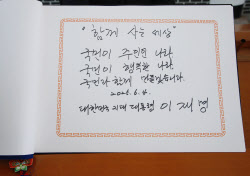 "함께 사는 세상"
국민이 주인인 나라
국민이 행복한 나라
국민과 함께 만들겠습니다.
2025. 6. 4.
대한민국 21대 대통령 이재명